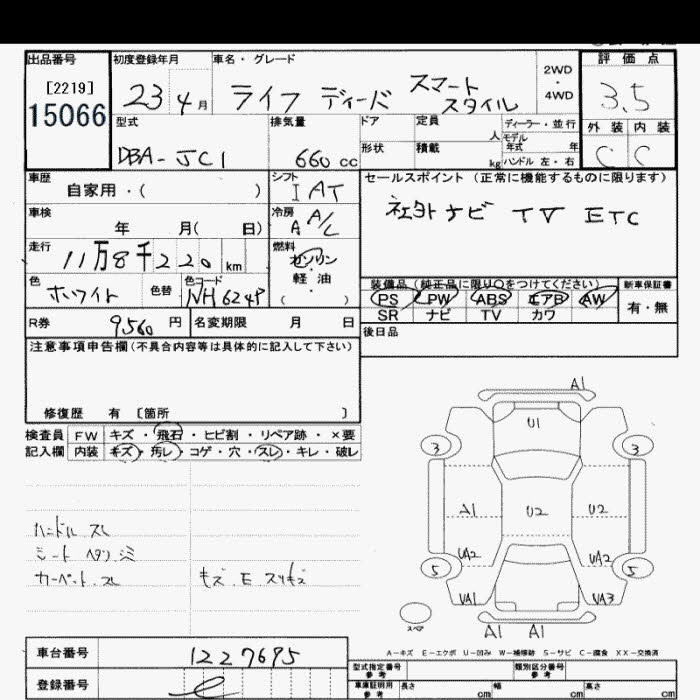 出品番号 初度登録年月 車名・グレード 2WD・4WD 評価点
[2219]
15066
23 4月 ライフ ディーバ スマートスタイル 3.5
型式 排気量 ドア 定員 人 ディーラー・並行 外装 内装
モデル年式 年
DBA-JC1 660cc 形状 積載 kg ハンドル 左・右 C C
車歴 自家用・( ) シフト IAT セールスポイント (正常に機能するものに限ります)
車検 年 月( 日) 冷房 A A/C 社外ナビ TV ETC
走行 11万8千220km 燃料 ガソリン 軽油 ( )
色 ホワイト 色替 色コード NH624P
装備品(純正品に限り○をつけてください) 新車保証書
PS PW ABS エアB AW 有・無
SR ナビ TV カワ
R券 9560円 名変期限 月 日 後日品
注意事項申告欄(不具合内容等は具体的に記入して下さい)
修復歴 有 [箇所 ]
検査員 FW キズ・飛石・ヒビ割・リペア跡・×要
記入欄 内装 キズ・汚レ・コゲ・穴・スレ・キレ・破レ
A1
U1
3 3
A1 U2 U2
ハンドル スレ
シート ヘタリ シミ UA2 UA2
カーペット スレ キズ・E スリキズ 5 5
UA1 UA3
スペア A1 A1
A-キズ E-エクボ U-凹み W-補修跡 S-サビ C-腐食 XX-交換済
車台番号 1227695
型式指定番号 参考 類別区分番号 参考
登録番号
車庫証明用 参考 長さ cm 幅 cm 高さ cm